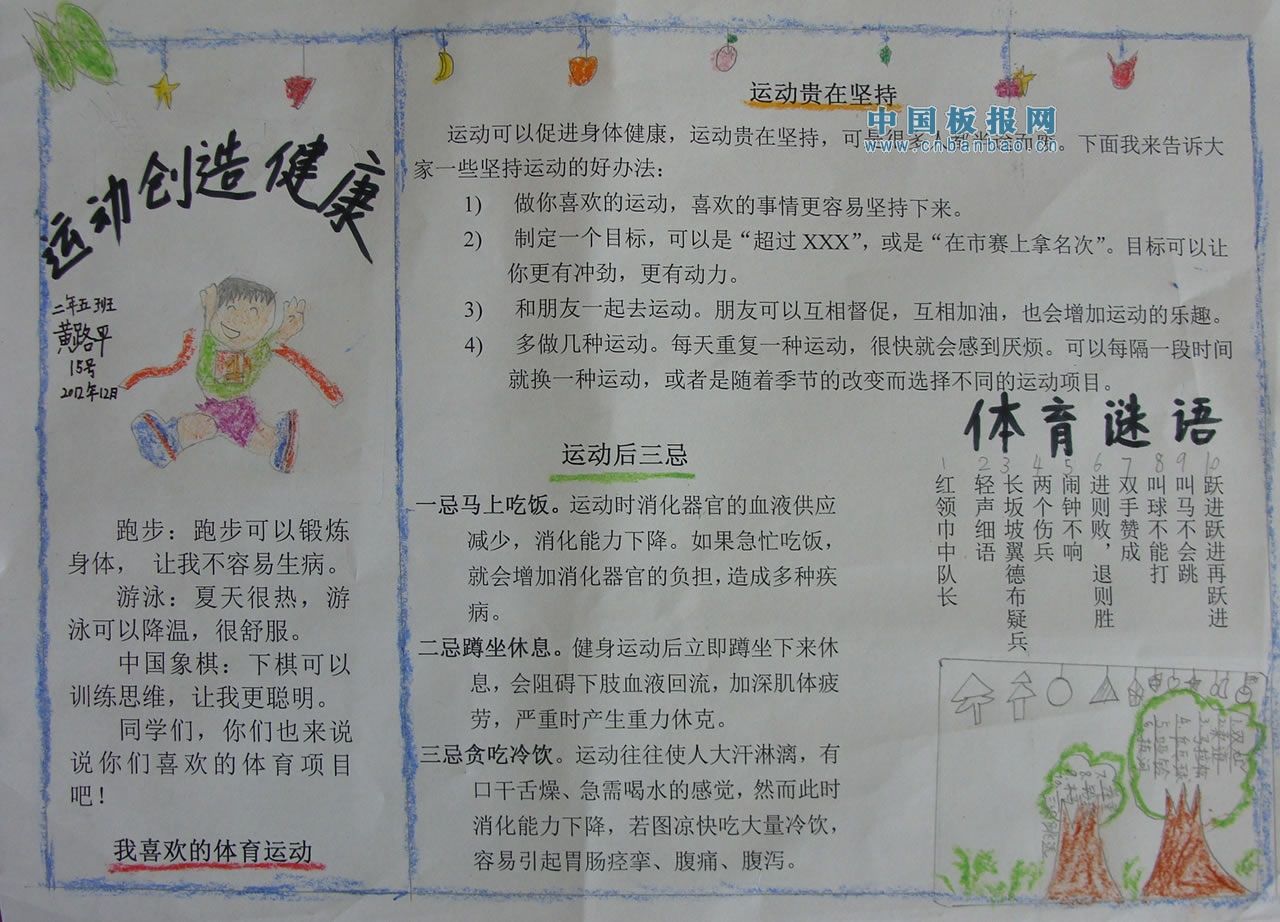 运动创造健康
二年五班
黄路平
15号
2012年12月
跑步：跑步可以锻炼
身体， 让我不容易生病。
游泳：夏天很热，游
泳可以降温，很舒服。
中国象棋：下棋可以
训练思维，让我更聪明。
同学们，你们也来说
说你们喜欢的体育项目
吧！
我喜欢的体育运动
运动贵在坚持
中国板报网
www.cnbanbao.cn
运动可以促进身体健康，运动贵在坚持，可是很多人。下面我来告诉大
家一些坚持运动的好办法：
1) 做你喜欢的运动，喜欢的事情更容易坚持下来。
2) 制定一个目标，可以是“超过 XXX”，或是“在市赛上拿名次”。目标可以让
你更有冲劲，更有动力。
3) 和朋友一起去运动。朋友可以互相督促，互相加油，也会增加运动的乐趣。
4) 多做几种运动。每天重复一种运动，很快就会感到厌烦。可以每隔一段时间
就换一种运动，或者是随着季节的改变而选择不同的运动项目。
运动后三忌
一忌马上吃饭。运动时消化器官的血液供应
减少，消化能力下降。如果急忙吃饭，
就会增加消化器官的负担，造成多种疾
病。
二忌蹲坐休息。健身运动后立即蹲坐下来休
息，会阻碍下肢血液回流，加深肌体疲
劳，严重时产生重力休克。
三忌贪吃冷饮。运动往往使人大汗淋漓，有
口干舌燥、急需喝水的感觉，然而此时
消化能力下降，若图凉快吃大量冷饮，
容易引起胃肠痉挛、腹痛、腹泻。
体育谜语
1 红领巾中队长
2 轻声细语
3 长坂坡翼德布疑兵
4 两个伤兵
5 闹钟不响
6 进则败，退则胜
7 双手赞成
8 叫球不能打
9 叫马不会跳
10 跃进跃进再跃进